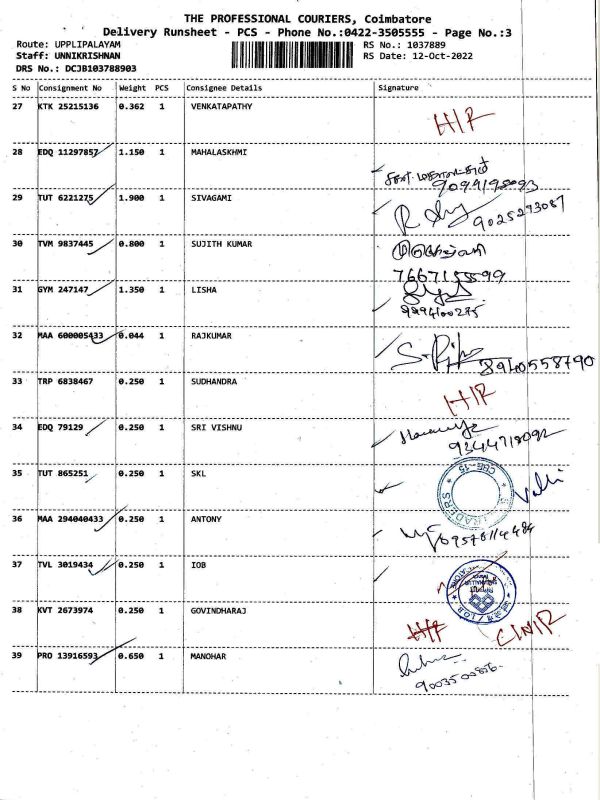 THE PROFESSIONAL COURIERS, Coimbatore
Delivery Runsheet - PCS - Phone No.:0422-3505555 - Page No.:3
Route: UPPLIPALAYAM RS No.: 1037889
Staff: UNNIKRISHNAN RS Date: 12-Oct-2022
DRS No.: DCJB103788903
S No Consignment No Weight PCS Consignee Details Signature
27 KTK 25215136 0.362 1 VENKATAPATHY H/R
28 EDQ 11297857 1.150 1 MAHALASKHMI
29 TUT 6221275 1.900 1 SIVAGAMI 9025273087
30 TVM 9837445 0.800 1 SUJITH KUMAR
7667155599
31 GYM 247147 1.350 1 LISHA
9994100275
32 MAA 600005433 0.044 1 RAJKUMAR
8940558790
33 TRP 6838467 0.250 1 SUDHANDRA H/R
34 EDQ 79129 0.250 1 SRI VISHNU
9344718092
35 TUT 865251 0.250 1 SKL
CBE-15
TRADERS
36 MAA 294040433 0.250 1 ANTONY
37 TVL 3019434 0.250 1 IOB
I.O.B
38 KVT 2673974 0.250 1 GOVINDHARAJ H/R
39 PRO 13916593 0.650 1 MANOHAR